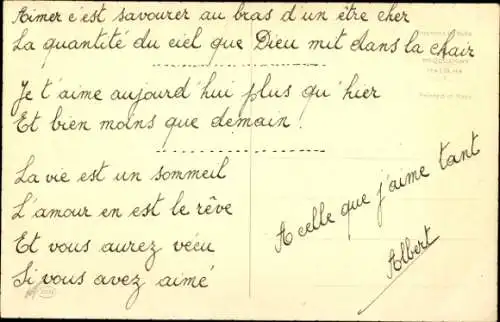 Aimer c'est savourer au bras d'un être cher
La quantité du ciel que Dieu mit dans la chair
Je t'aime aujourd'hui plus qu'hier
Et bien moins que demain !
La vie est un sommeil
L'amour en est le rêve
Et vous aurez vécu
Si vous avez aimé
A celle que j'aime tant
Albert